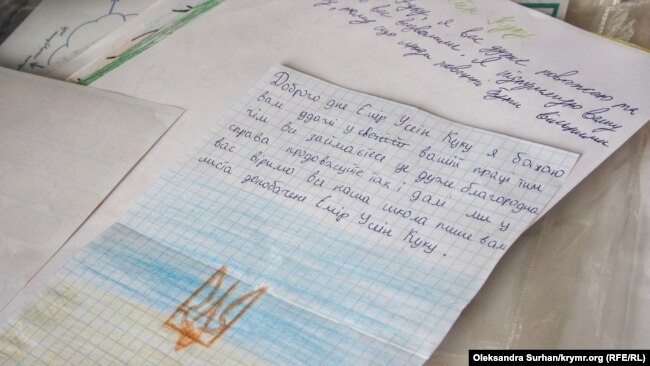 Куку, я вас дуже поважаю та
вами. Я підтримую вашу
тому що люди повинні бути вільними
Доброго дня Емір Усеїн Куку я бажаю
вам вдачі у вашій праці тим
чім ви займаєтеся це дуже благородна
справа продовжуйте так і далі ми у
вас віримо вся наша школа пише вам
листа допобачене Емір Усеїн Куку.
Oleksandra Surhan/krymr.org (RFE/RL)